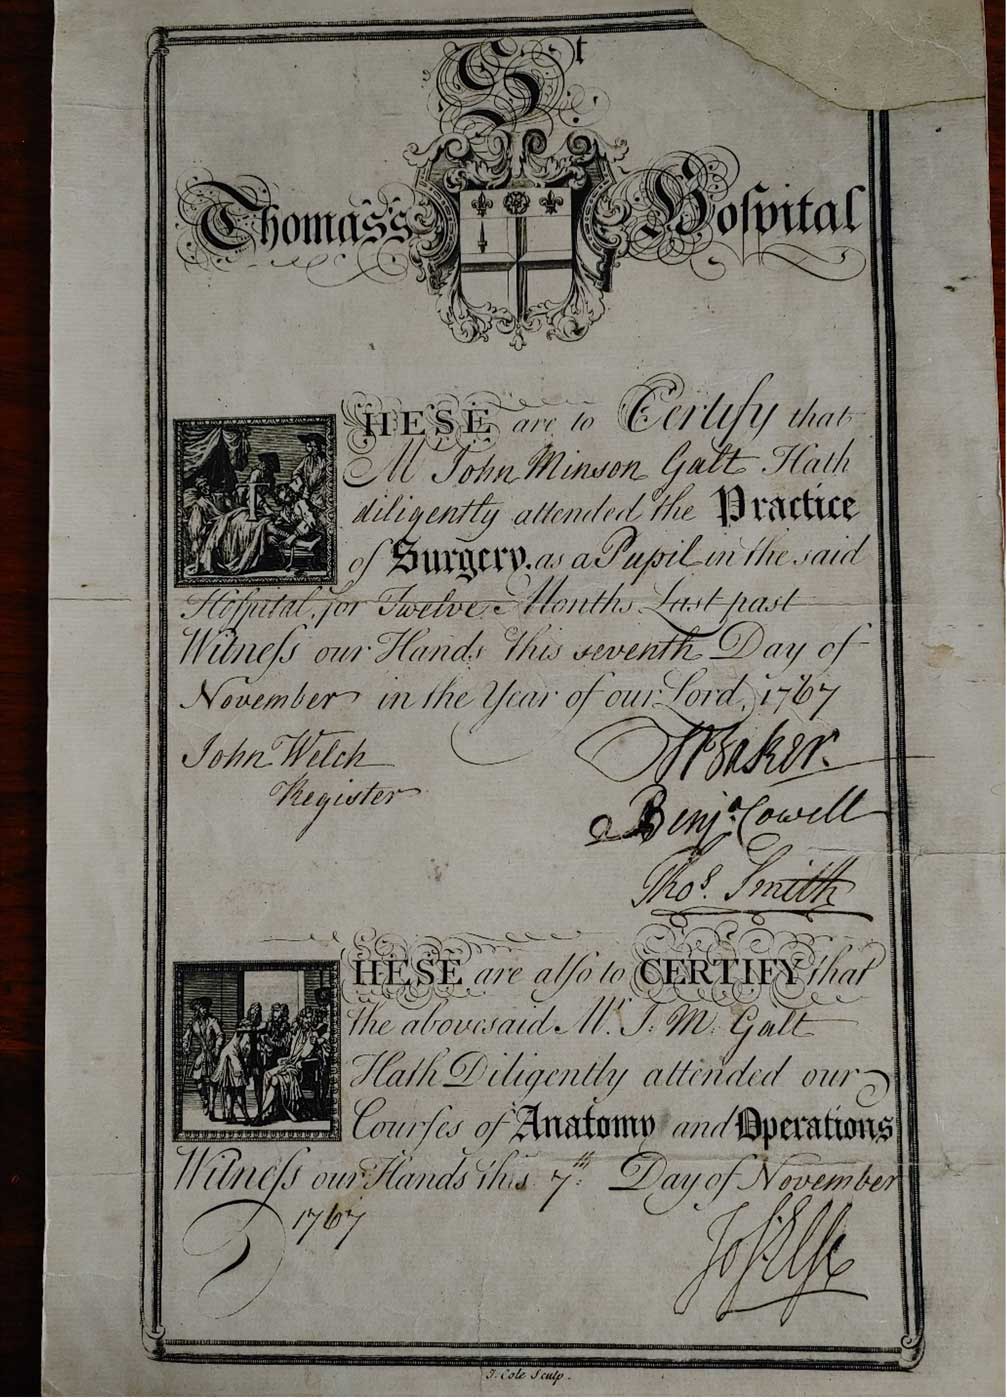 St
Thomas's Hospital
THESE are to Certify that
Mr John Minson Galt Hath
diligently attended the Practice
of Surgery. as a Pupil in the said
Hospital, for Twelve Months Last past
Witneſs our Hands this seventh Day of
November in the Year of our Lord, 1767
John Welch
Register
Baker.
Benjn. Cowell
Thos. Smith
THESE are alſo to CERTIFY that
the abovesaid Mr. J: M: Galt
Hath Diligently attended our
Courſes of Anatomy and Operations
Witneſs our Hands this 7th: Day of November
1767
Jos: Elſe
J. Cole Sculp.